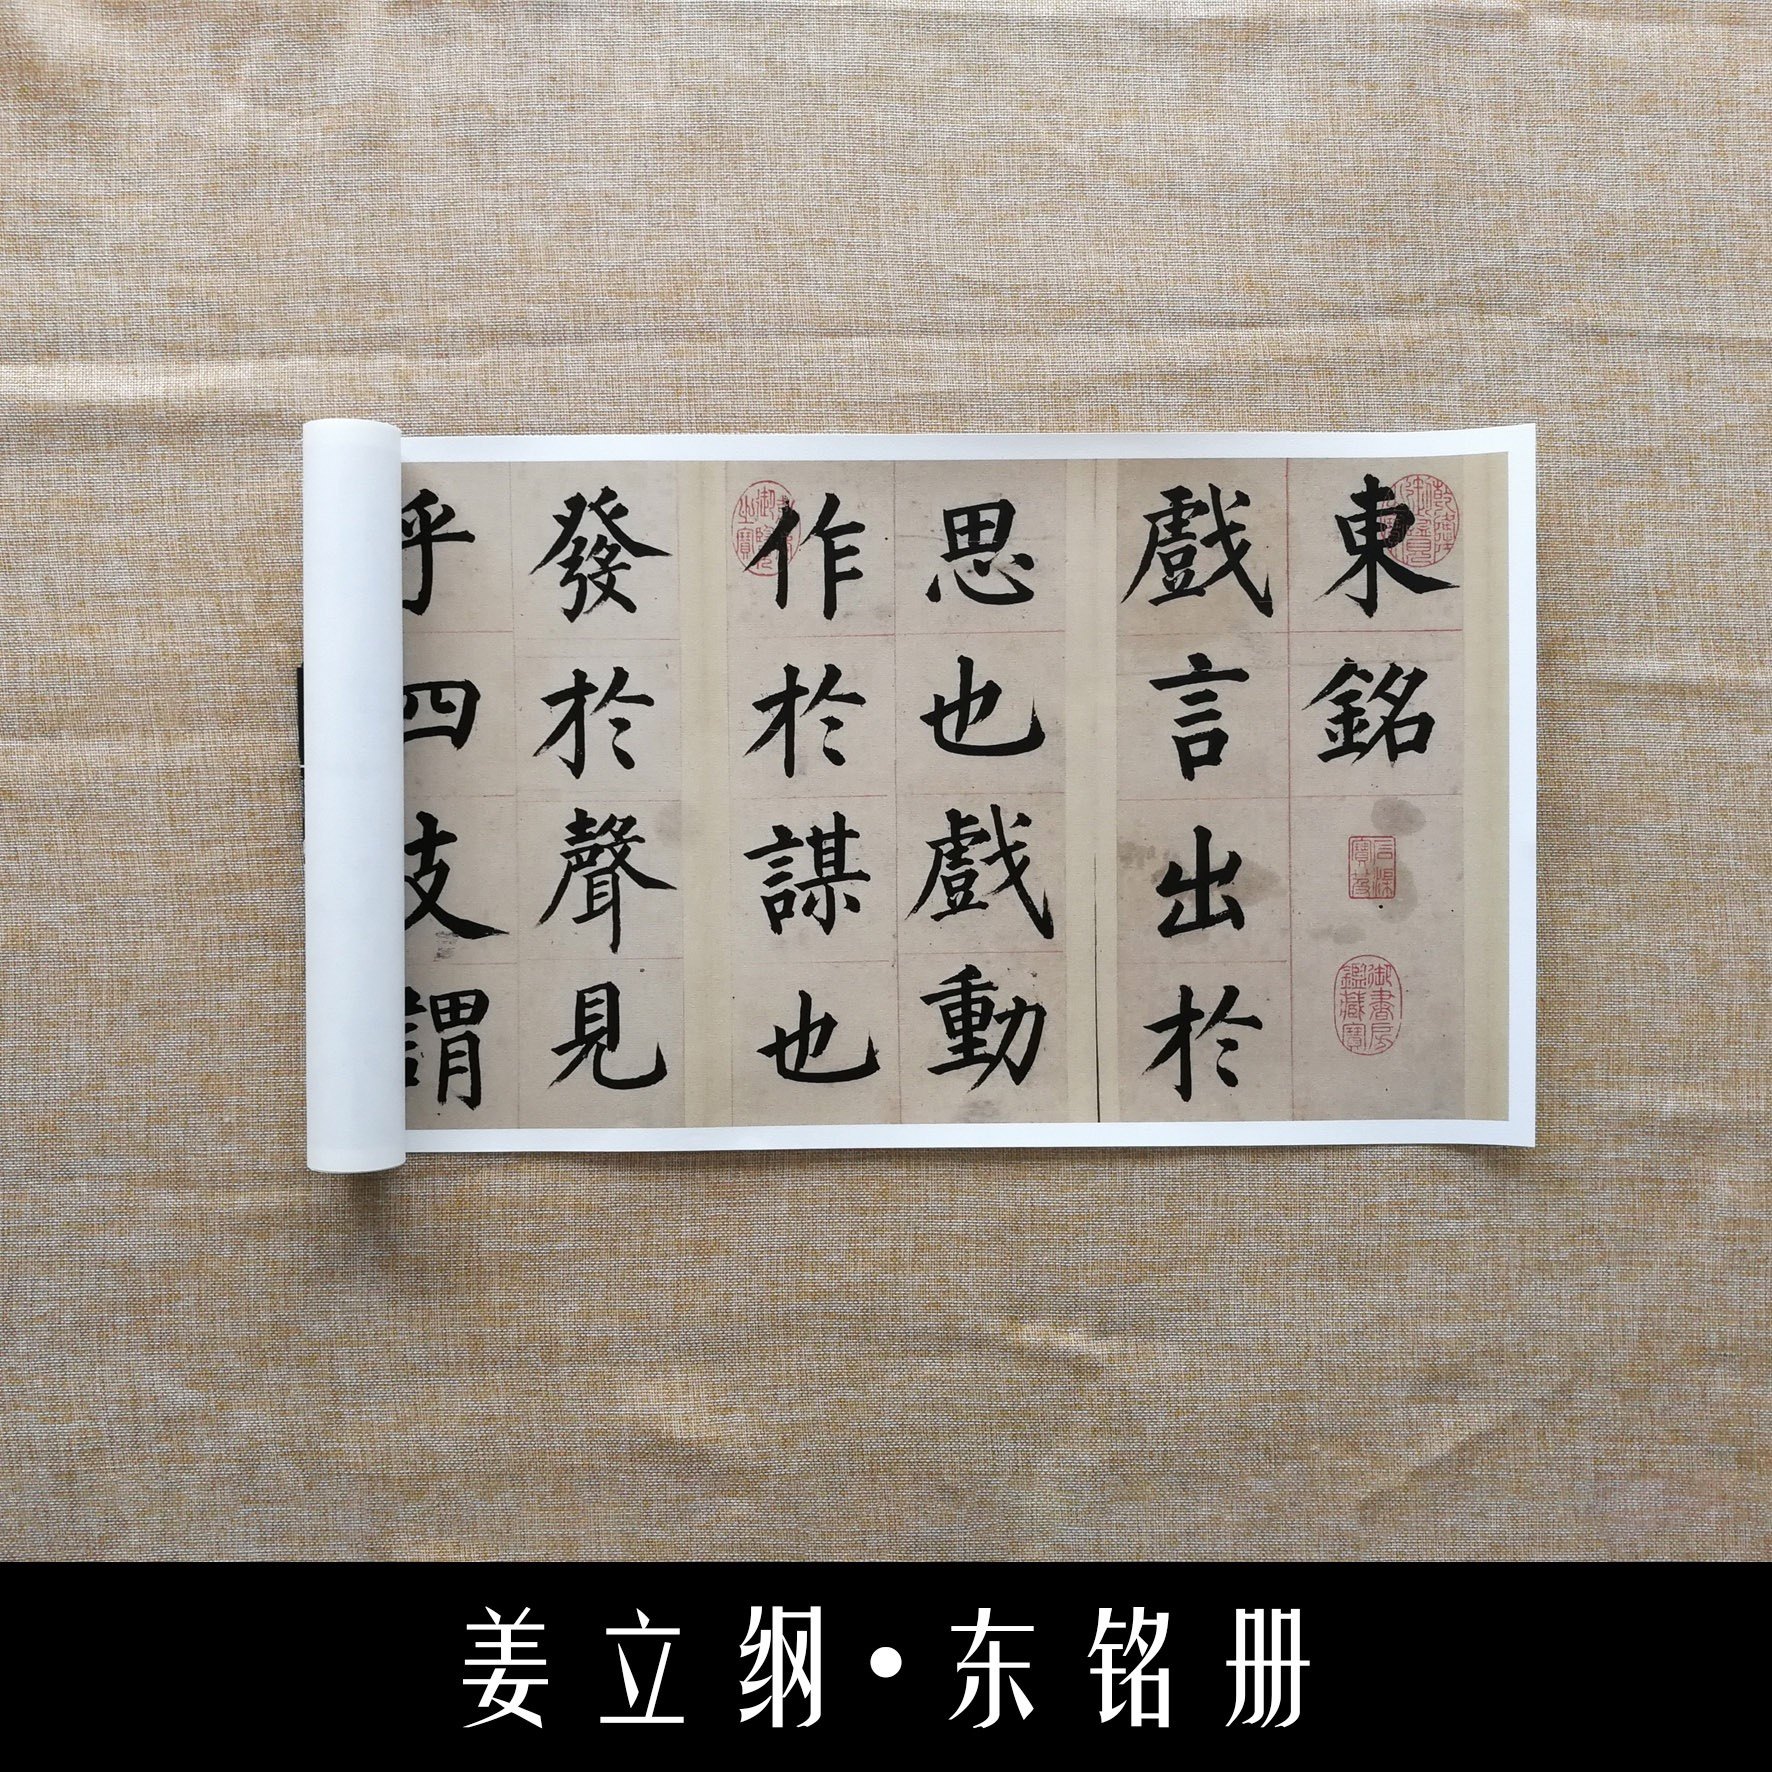 東銘
戲言出於
思也戲動
作於謀也
發於聲見
乎四支謂
御書房鑑藏寶
姜立纲·东铭册